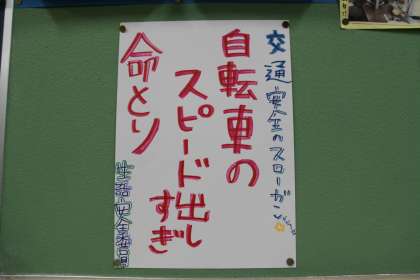 交通安全のスローガン
自転車の
スピード出し
すぎ
命とり